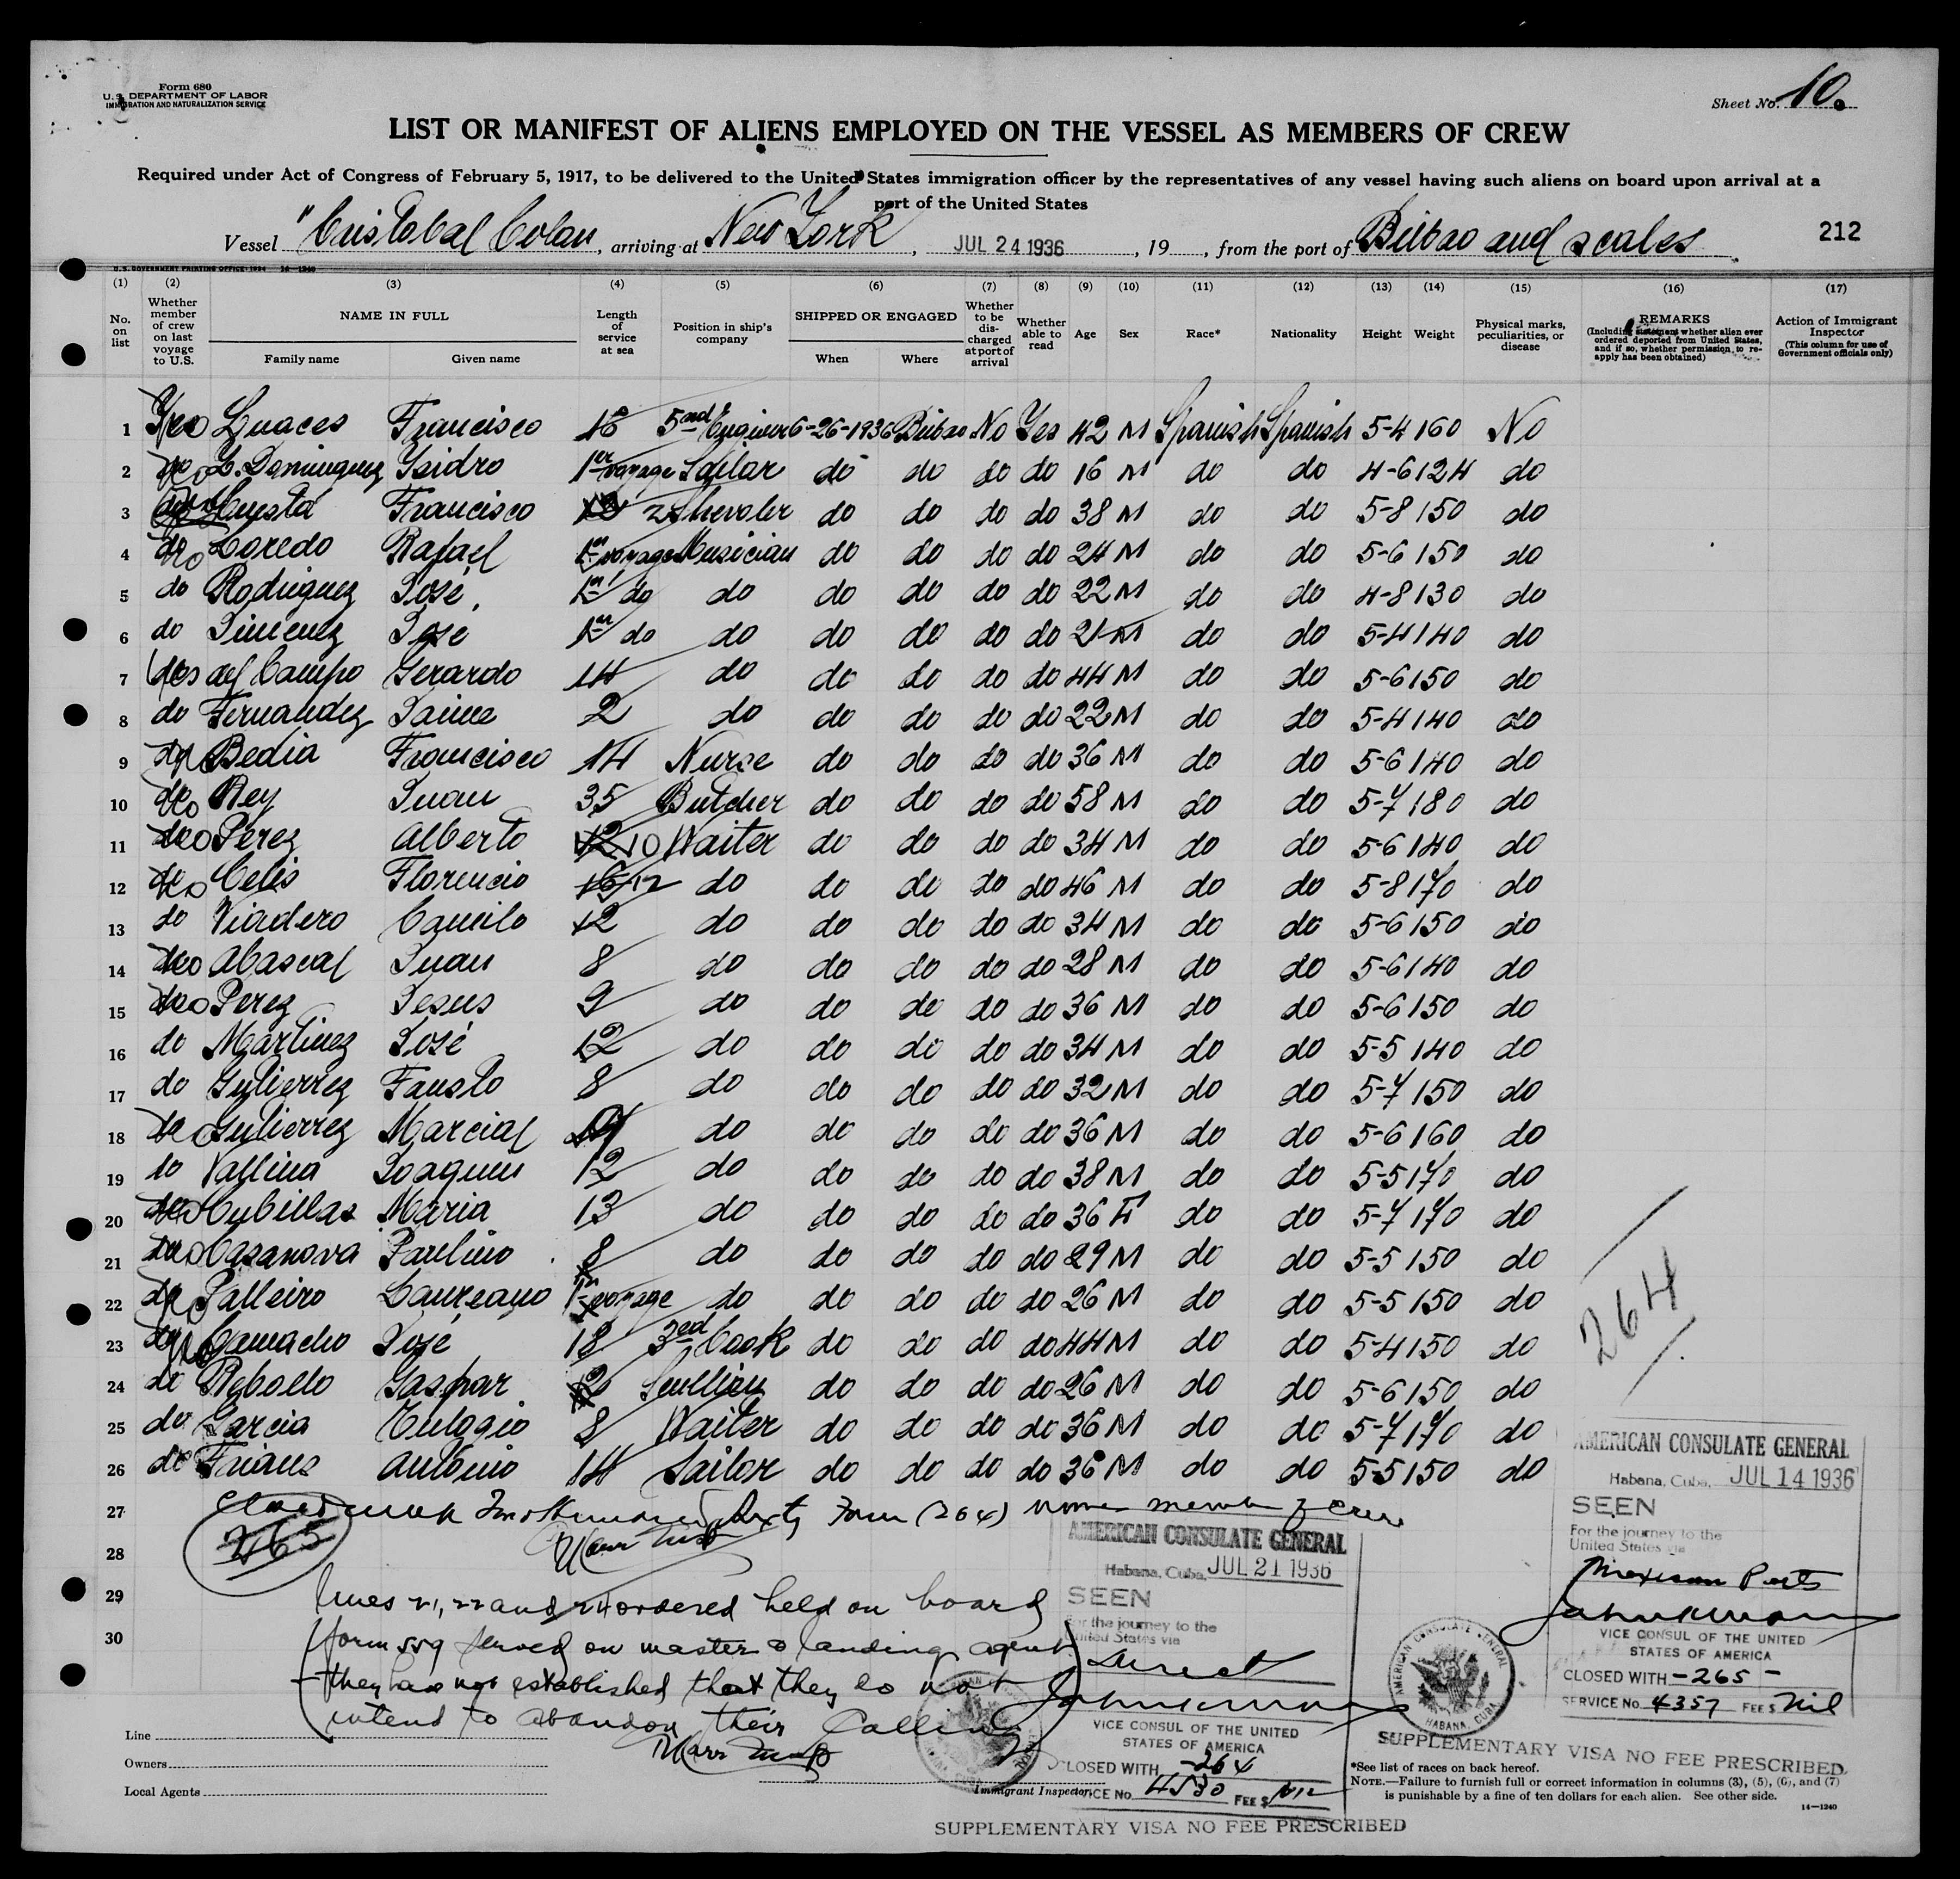 Form 680
U. S. DEPARTMENT OF LABOR
IMMIGRATION AND NATURALIZATION SERVICE
Sheet No. 10.
LIST OR MANIFEST OF ALIENS EMPLOYED ON THE VESSEL AS MEMBERS OF CREW
Required under Act of Congress of February 5, 1917, to be delivered to the United States immigration officer by the representatives of any vessel having such aliens on board upon arrival at a
port of the United States
Vessel "Cristobal Colon, arriving at New York, JUL 24 1936, 19, from the port of Bilbao and scales
212
U. S. GOVERNMENT PRINTING OFFICE: 1934 14—1240
(1) (2) (3) (4) (5) (6) (7) (8) (9) (10) (11) (12) (13) (14) (15) (16) (17)
No. on list
Whether member of crew on last voyage to U.S.
NAME IN FULL
Family name Given name
Length of service at sea
Position in ship's company
SHIPPED OR ENGAGED
When Where
Whether to be discharged at port of arrival
Whether able to read
Age
Sex
Race*
Nationality
Height
Weight
Physical marks, peculiarities, or disease
REMARKS
(Including statement whether alien ever ordered deported from United States, and if so, whether permission to reapply has been obtained)
Action of Immigrant Inspector
(This column for use of Government officials only)
1 Yes Luaces Francisco 18 5nd Engineer 6-26-1936 Bilbao No Yes 42 M Spanish Spanish 5-4 160 No
2 do L. Dominguez Isidro 1er voyage Sailor do do do do 16 M do do 4-6 124 do
3 do Cuesta Francisco do do do do 38 M do do 5-8 150 do
4 do Loredo Rafael 1er voyage Musician do do do do 24 M do do 5-6 150 do
5 do Rodriguez José, 1er do do do do do do 22 M do do 4-8 130 do
6 do Jimenez Jose 1er do do do do do do 21 M do do 5-4 140 do
7 do del Campo Gerardo 14 do do do do do 44 M do do 5-6 150 do
8 do Fernandez Jaime 2 do do do do do 22 M do do 5-4 140 do
9 do Bedia Francisco 14 Nurse do do do do 36 M do do 5-6 140 do
10 do Rey Juan 35 Butcher do do do do 58 M do do 5-7 180 do
11 do Perez Alberto 12 10 Waiter do do do do 34 M do do 5-6 140 do
12 do Celis Florencio 16 12 do do do do do 46 M do do 5-8 170 do
13 do Viadero Camilo 12 do do do do do 34 M do do 5-6 150 do
14 do Abascal Juan 8 do do do do do 28 M do do 5-6 140 do
15 do Perez Jesus 9 do do do do do 36 M do do 5-6 150 do
16 do Martinez José 12 do do do do do 34 M do do 5-5 140 do
17 do Gutierrez Fausto 8 do do do do do 32 M do do 5-7 150 do
18 do Gutierrez Marcial do do do do do 36 M do do 5-6 160 do
19 do Vallina Joaquin 12 do do do do do 38 M do do 5-5 170 do
20 do Cubillas Maria 13 do do do do do 36 F do do 5-7 170 do
21 do Casanova Paulino 8 do do do do do 29 M do do 5-5 150 do
22 do Palleiro Laureano 1er voyage do do do do do 26 M do do 5-5 150 do
23 do Camacho José 18 3ed Cook do do do do 44 M do do 5-4 150 do
24 do Rebollo Gaspar Scullion do do do do 26 M do do 5-6 150 do
25 do Garcia Eulogio 8 Waiter do do do do 36 M do do 5-7 170 do
26 do Antonio 14 Sailor do do do do 36 M do do 5-5 150 do
27 Four (264) member of crew
265
28
29 lines 21, 22 and 24 ordered held on board
30 (form 559 served on master & landing agent
they have not established that they do not
intend to abandon their Calling)
264
AMERICAN CONSULATE GENERAL
Habana, Cuba, JUL 21 1936
SEEN
For the journey to the
United States via
Direct
VICE CONSUL OF THE UNITED
STATES OF AMERICA
CLOSED WITH -264
SERVICE No. 4530 FEE $ Nil
SUPPLEMENTARY VISA NO FEE PRESCRIBED
AMERICAN CONSULATE GENERAL
Habana, Cuba, JUL 14 1936
SEEN
For the journey to the
United States via
Mexican Ports
VICE CONSUL OF THE UNITED
STATES OF AMERICA
CLOSED WITH -265-
SERVICE No. 4357 FEE $ Nil
AMERICAN CONSULATE GENERAL
HABANA, CUBA
SUPPLEMENTARY VISA NO FEE PRESCRIBED
Line
Owners
Local Agents
Immigrant Inspector.
*See list of races on back hereof.
NOTE.—Failure to furnish full or correct information in columns (3), (5), (6), and (7)
is punishable by a fine of ten dollars for each alien. See other side.
14—1240